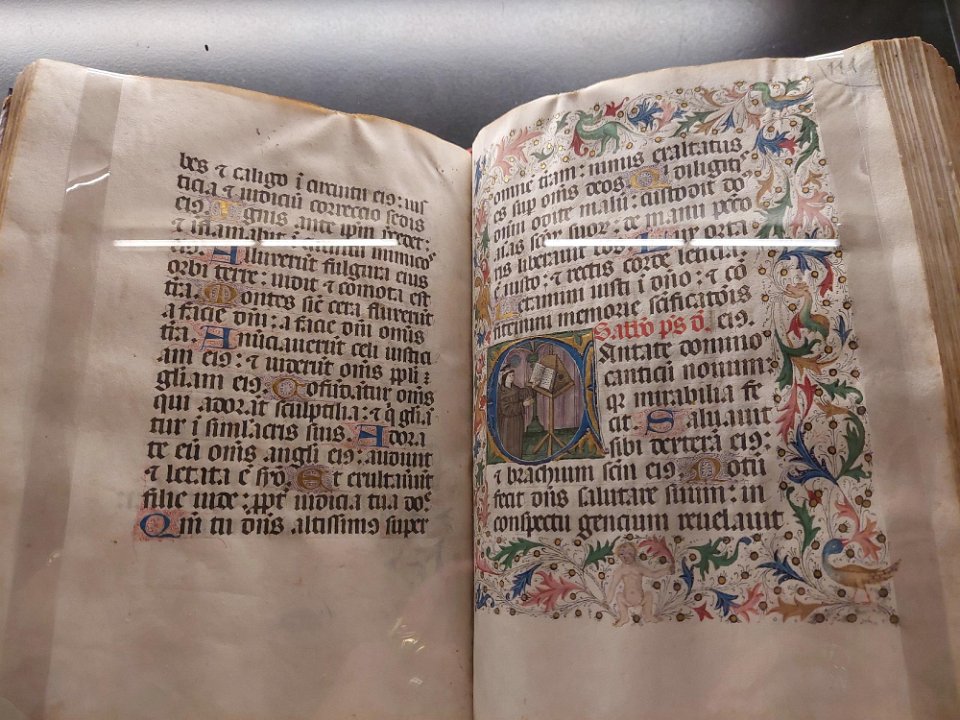 bes ⁊ caligo ī circuitu ei9: ius
ticia ⁊ iudiciū correctio sedis
ei9 Ignis ante ipm̄ precedet:
⁊ īflamabit ī circuitu īimicos
ei9: Alluxerūt fulgura eius
orbi terre: uidit ⁊ cōmota est
t̄ra. Montes sic̄ cera fluxerūt
a facie dn̄i: a facie dn̄i omīs
t̄ra. Anūciauerūt celi iustici
am ei9: ⁊ uiderūt omīs ppl̄i
gl̄iam ei9. Cōfūdātur omīs
qui adorāt sculptilia: ⁊ q̄ gl̄iā
tur ī simlacris suis. Adora
te eū omīs angl̄i ei9: audiuit
⁊ letata ē syō. Et exultauūt
filie iude: ppt̄ iudicia tua dōe
Qm̄ tu dn̄s altissimus super
111
omne t̄ram: nimis exaltatus
es sup om̄s deos. Qui diligiti
dn̄m odite malū: custodit dō
aīas sctōr̄ suor̄: de manu pctō
ris liberauit eos Lux orta
ē iusto: ⁊ rectis corde leticia
Letamini iusti ī dn̄o: ⁊ cō
fitemini memorie sc̄ificatōis
ei9. Dauid ps
Cantate domino
canticū nouum:
qr̄ mirabilia fe
cit Saluauit
sibi dextera ei9:
⁊ brachium scm̄ ei9 Notū
fecit dn̄s salutare suum: in
conspectu gencium reuelauit